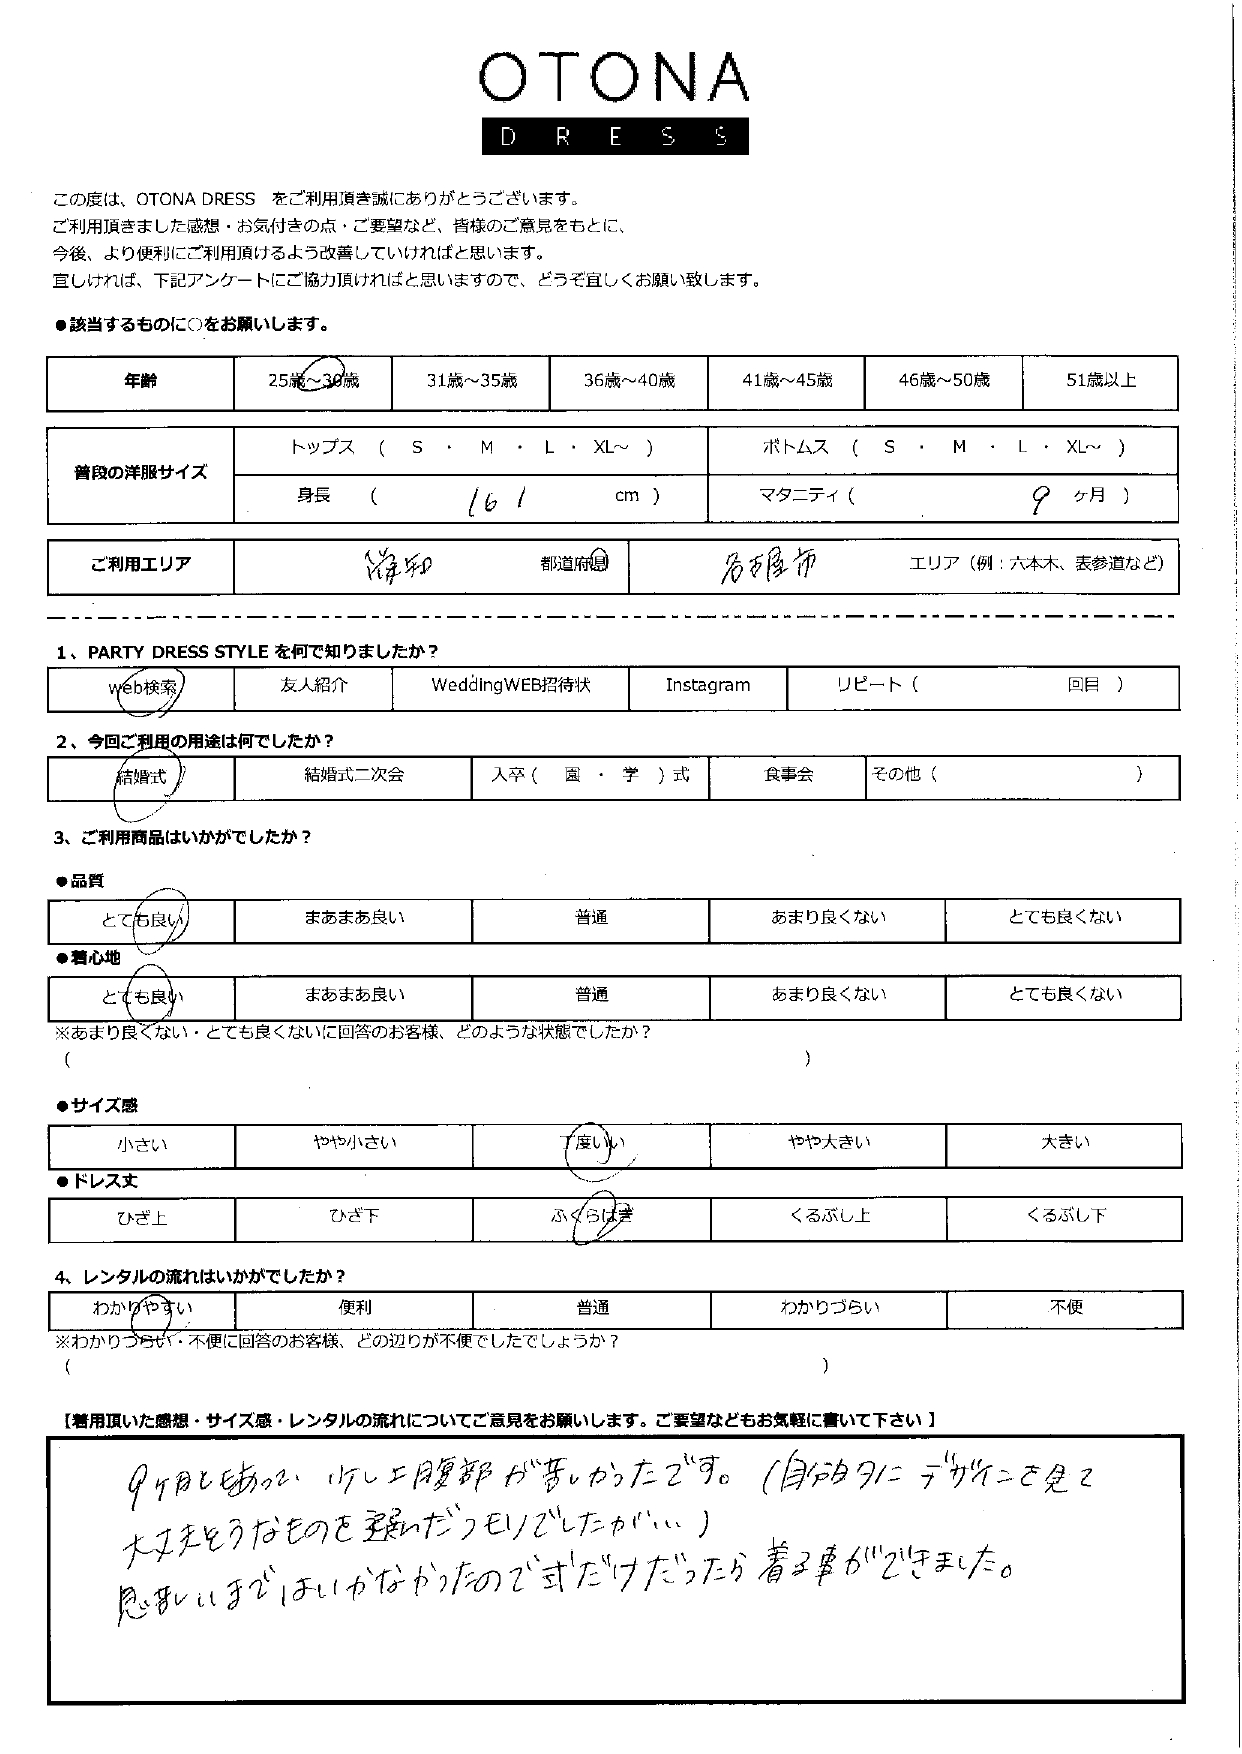 OTONA
DRESS
この度は、OTONA DRESS をご利用頂き誠にありがとうございます。
ご利用頂きました感想・お気付きの点・ご要望など、皆様のご意見をもとに、
今後、より便利にご利用頂けるよう改善していければと思います。
宜しければ、下記アンケートにご協力頂ければと思いますので、どうぞ宜しくお願い致します。
●該当するものに○をお願いします。
年齢 25歳～30歳 31歳～35歳 36歳～40歳 41歳～45歳 46歳～50歳 51歳以上
普段の洋服サイズ トップス ( S ・ M ・ L ・ XL～ ) ボトムス ( S ・ M ・ L ・ XL～ )
身長 ( 161 cm ) マタニティ ( 9 ヶ月 )
ご利用エリア 愛知 都道府県 名古屋市 エリア（例：六本木、表参道など）
1、PARTY DRESS STYLE を何で知りましたか？
web検索 友人紹介 WeddingWEB招待状 Instagram リピート ( 回目 )
2、今回ご利用の用途は何でしたか？
結婚式 結婚式二次会 入卒 ( 園 ・ 学 ) 式 食事会 その他 ( )
3、ご利用商品はいかがでしたか？
●品質
とても良い まあまあ良い 普通 あまり良くない とても良くない
●着心地
とても良い まあまあ良い 普通 あまり良くない とても良くない
※あまり良くない・とても良くないに回答のお客様、どのような状態でしたか？
( )
●サイズ感
小さい やや小さい 丁度いい やや大きい 大きい
●ドレス丈
ひざ上 ひざ下 ふくらはぎ くるぶし上 くるぶし下
4、レンタルの流れはいかがでしたか？
わかりやすい 便利 普通 わかりづらい 不便
※わかりづらい・不便に回答のお客様、どの辺りが不便でしたでしょうか？
( )
【着用頂いた感想・サイズ感・レンタルの流れについてご意見をお願いします。ご要望などもお気軽に書いて下さい 】
9ヶ月ともあって、少し上腹部が苦しかったです。(自分的にデザインを見て
大丈夫そうなものを選んだつもりでしたが…)
息苦しいまではいかなかったので式だけだったら着る事ができました。